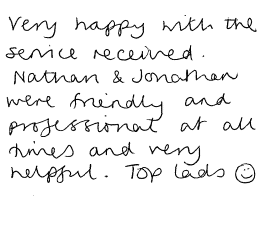 Very happy with the
service received.
Nathan & Jonathan
were friendly and
professional at all
times and very
helpful. Top lads ☺